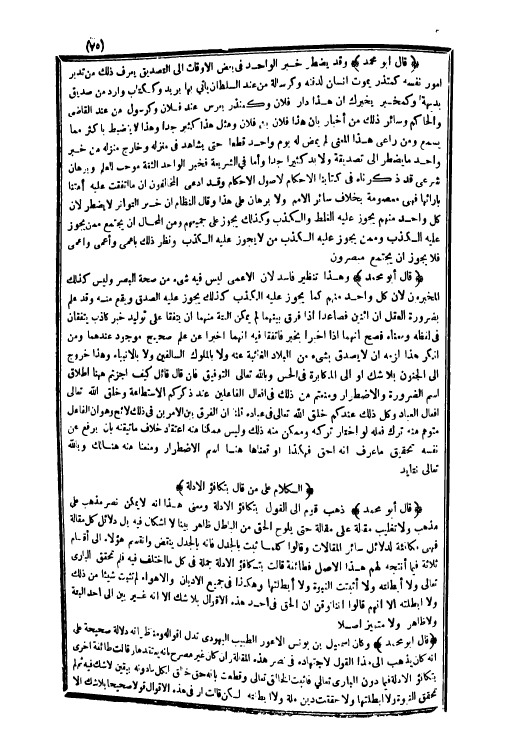 (٧٥)
﴿ قال أبو محمد ﴾ وقد يضطر خبر الواحد في بعض الاوقات الى التصديق يعرف ذلك من تدبر
امور نفسه كمنذر بموت انسان لدفنه وكرسالة من عند السلطان يأتي بها بريد وككتاب وارد من صديق
بديهة وكمخبر يخبرك ان هذا دار فلان وكمنذر بعرس عند فلان وكرسول من عند القاضي
والحاكم وسائر ذلك من أخبار بان هذا فلان بن فلان ومثل هذا كثير جدا وهذا لا ينضبط باكثر مما
يسمع ومن راعى هذا المعنى لم يمض له يوم واحد قطعا حتى يشاهد في منزله وخارج منزله من خبر
واحد ما يضطر الى تصديقه ولا بد كثيرا جدا وأما في الشريعة فخبر الواحد الثقة موجب العلم وبرهان
شرعي قد ذكرناه في كتابنا الاحكام لاصول الاحكام وقد ادعى المخالفون ان ما اتفقت عليه أمتنا
بارائها فهي معصومة بخلاف سائر الامم ولا برهان على هذا وقال النظام ان خبر التواتر لا يضطر لان
كل واحد منهم يجوز عليه الغلط والكذب وكذلك يجوز على جميعهم ومن المحال ان يجتمع ممن يجوز
عليه الكذب وممن يجوز عليه الكذب من لا يجوز عليه الكذب ونظر ذلك باعمى وأعمى واعمى
فلا يجوز ان يجتمع مبصرون
﴿ قال أبو محمد ﴾ وهذا تنظير فاسد لان الاعمى ليس فيه شيء من صحة البصر وليس كذلك
المخبرون لان كل واحد منهم كما يجوز عليه الكذب كذلك يجوز عليه الصدق ويقع منه وقد علم
بضرورة العقل ان اثنين فصاعدا اذا فرق بينهما لم يمكن البتة منهما ان يتفقا على توليد خبر كاذب يتفقان
في لفظه ومعناه فصح أنهما اذا اخبرا بخبر فاتفقا فيه انهما اخبرا عن علم صحيح موجود عندهما ومن
انكر هذا لزمه ان لا يصدق بشيء من البلاد الغائبة عنه ولا بالملوك السالفين ولا بالانبياء وهذا خروج
الى الجنون بلا شك او الى المكابرة في الحس وبالله تعالى التوفيق فان قال قائل كيف اجزتم ههنا اطلاق
اسم الضرورة والاضطرار ومنعتم من ذلك في افعال الفاعلين عند ذكركم الاستطاعة وخلق الله تعالى
افعال العباد وكل ذلك عندكم خلق الله تعالى في عباده قلنا ان الفرق بين الامرين في ذلك لائح وهو ان الفاعل
متوهم منه ترك فعله لو اختار تركه وممكن منه ذلك وليس ممكنا منه اعتقاد خلاف ما تيقنه بان يرفع عن
نفسه تحقيق ما عرف انه احق فهكذا اوقعنا ههنا اسم الاضطرار ومنعنا منه هنالك وبالله
تعالى نتايد
﴿ الكلام على من قال بتكافؤ الادلة ﴾
﴿ قال أبو محمد ﴾ ذهب قوم الى القول بتكافؤ الادلة ومعنى هذا انه لا يمكن نصر مذهب على
مذهب ولا تغليب مقالة على مقالة حتى يلوح الحق من الباطل ظاهر بينا لا اشكال فيه بل دلائل كل مقالة
فهي مكافئة لدلائل سائر المقالات وقالوا كلما ثبت بالجدل فانه بالجدل ينقض وانقسم هؤلاء الى أقسام
ثلاثة فيما أنتجه لهم هذا الاصل فطائفة قالت بتكافؤ الادلة جملة في كل ما اختلف فيه فلم تحقق البارئ
تعالى ولا أبطلته ولا أثبتت النبوة ولا أبطلتها وهكذا في جميع الاديان والاهواء لم تثبت شيئا من ذلك
ولا ابطلته الا انهم قالوا اننا نوقن ان الحق في احد هذه الاقوال بلا شك الا انه غير بين الى احد البتة
ولا ظاهر ولا متميز اصلا
﴿ قال ابو محمد ﴾ وكان اسمعيل بن يونس الاعور الطبيب اليهودي تدل اقواله ومناظراته دلالة صحيحة على
انه كان يذهب الى هذا القول لاجتهاده في نصر هذه المقالة وان كان غير مصرح بانه يعتقدها وقالت طائفة اخرى
بتكافؤ الادلة فيما دون البارئ تعالى فاثبتت الخالق تعالى وقطعت بانه حق خالق لكل ما دونه بيقين لا شك فيه ثم لم
تحقق النبوة ولا ابطلتها ولا حققت دين ملة ولا ابطلته لكن قالت ان في هذه الاقوال قولا صحيحا بلا شك الا